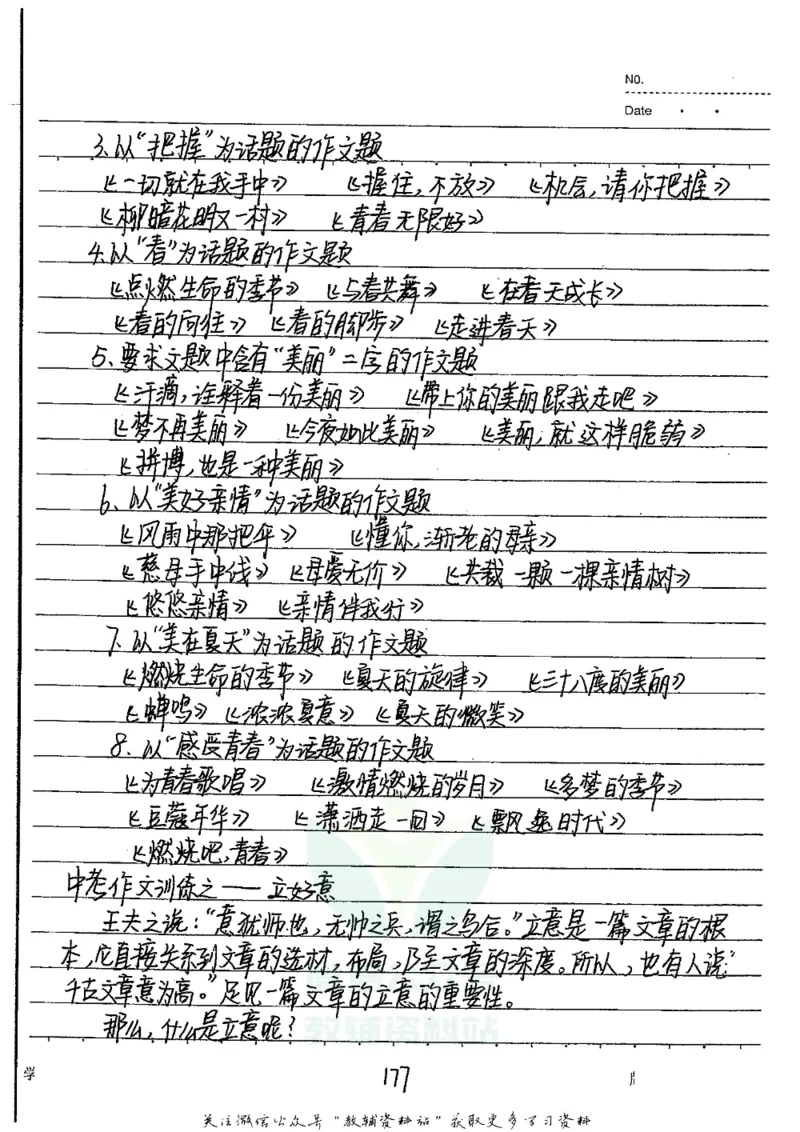 NO.
Date
3.以“把握”为话题的作文题
《一切就在我手中》 《握住,不放》 《机会,请你把握》
《柳暗花明又一村》 《青春无限好》
4.以“春”为话题的作文题
《点燃生命的季节》 《与春共舞》 《在春天成长》
《春的向往》 《春的脚步》 《走进春天》
5、要求文题中含有“美丽”二字的作文题
《汗滴,诠释着一份美丽》 《带上你的美丽跟我走吧》
《梦不再美丽》 《今夜如此美丽》 《美丽,就这样脆弱》
《拼搏,也是一种美丽》
6、以“美好亲情”为话题的作文题
《风雨中那把伞》 《懂你,渐老的母亲》
《慈母手中线》 《母爱无价》 《共栽一颗一棵亲情树》
《悠悠亲情》 《亲情伴我行》
7.以“美在夏天”为话题的作文题
《燃烧生命的季节》 《夏天的旋律》 《三十八度的美丽》
《蝉鸣》 《浓浓夏意》 《夏天的微笑》
8.以“感受青春”为话题的作文题
《为青春歌唱》 《激情燃烧的岁月》 《多梦的季节》
《豆蔻年华》 《潇洒走一回》 《飘逸时代》
《燃烧吧,青春》
中考作文训练之——立好意
王夫之说:“意犹师也,无帅之兵,谓之乌合。”立意是一篇文章的根
本,它直接关系到文章的选材,布局,乃至文章的深度。所以,也有人说:“
千古文章意为高。”足见一篇文章的立意的重要性。
那么,什么是立意呢?
教辅资料站
学
177
关注微信公众号“教辅资料站”获取更多学习资料